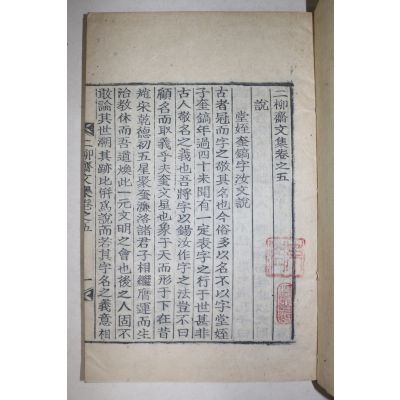 二柳齋文集卷之五
說
堂姪奎鎬字汝文說
古者冠而字敬其名也今俗多以名不以字堂姪
子奎鎬年過四十未聞有一定表字之行于世甚非
古人敬名之義也吾將字以錫汝作字之法豈不曰
顧名而取義乎夫奎文星也象于天而形于下在昔
趙宋乾德初五星聚奎濂洛諸君子相繼膺運而生
治教休而吾道煥此一元文明之會也後之人固不
敢論其世期其跡比併爲說而若其字名之義意相
二柳齋文集 卷之五
一